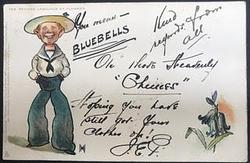 THE SECOND LANGUAGE OF FLOWERS
You mean—
BLUEBELLS
Kind
regards from
all
Oh those Heavenly
"Chimes"
Hoping you have
still got your
Clothes on!
J.E.P.